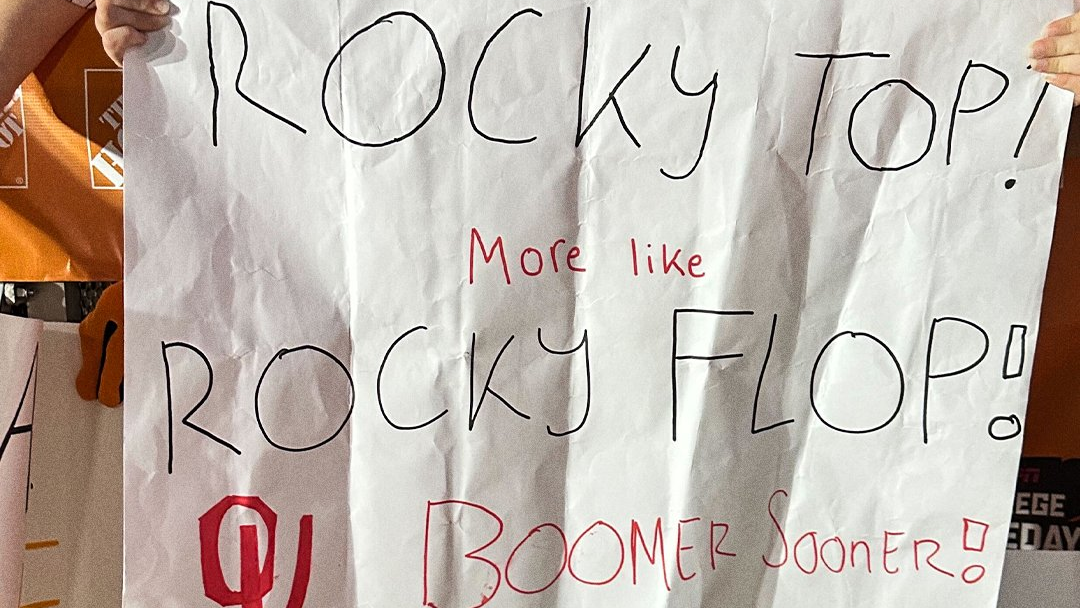 ROCKY TOP!
More like
ROCKY FLOP!
OU BOOMER SOONER!